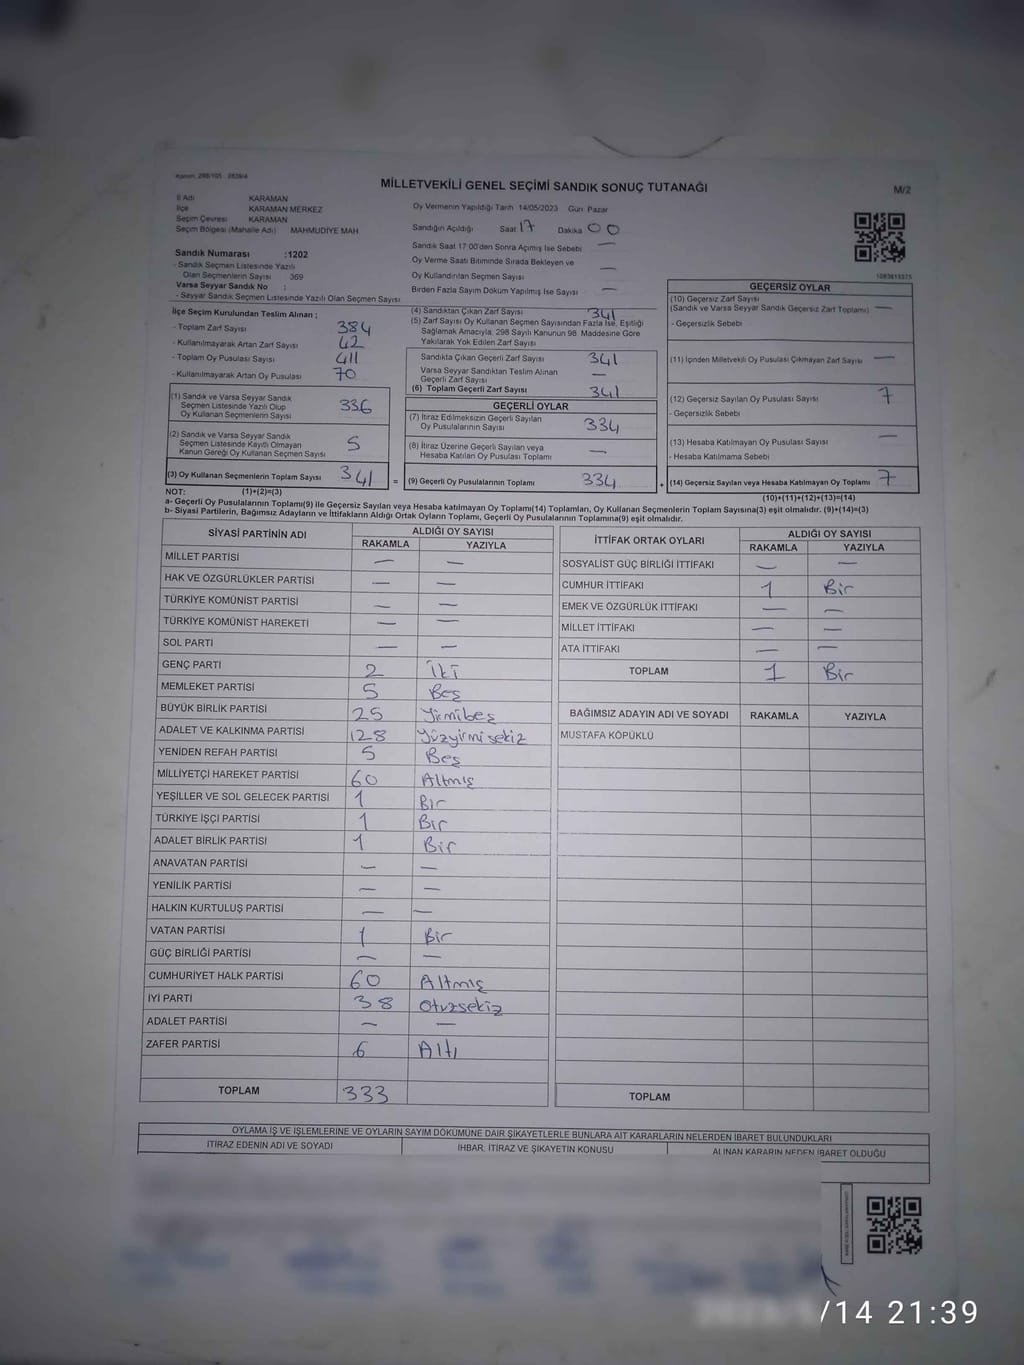 Kanun: 298/105 - 2839/4
MİLLETVEKİLİ GENEL SEÇİMİ SANDIK SONUÇ TUTANAĞI
M/2
İl Adı KARAMAN
İlçe KARAMAN MERKEZ
Seçim Çevresi KARAMAN
Seçim Bölgesi (Mahalle Adı) MAHMUDİYE MAH
Sandık Numarası :1202
- Sandık Seçmen Listesinde Yazılı
Olan Seçmenlerin Sayısı 369
Varsa Seyyar Sandık No :
- Seyyar Sandık Seçmen Listesinde Yazılı Olan Seçmen Sayısı
Oy Vermenin Yapıldığı Tarih 14/05/2023 Gün: Pazar
Sandığın Açıldığı Saat 17 Dakika 00
Sandık Saat 17:00'den Sonra Açımış İse Sebebi —
Oy Verme Saati Bitiminde Sırada Bekleyen ve
Oy Kullandırılan Seçmen Sayısı —
Birden Fazla Sayım Döküm Yapılmış İse Sayısı —
İlçe Seçim Kurulundan Teslim Alınan ;
- Toplam Zarf Sayısı 384
- Kullanılmayarak Artan Zarf Sayısı 42
- Toplam Oy Pusulası Sayısı 411
- Kullanılmayarak Artan Oy Pusulası 70
(1) Sandık ve Varsa Seyyar Sandık
Seçmen Listesinde Yazılı Olup
Oy Kullanan Seçmenlerin Sayısı 336
(2) Sandık ve Varsa Seyyar Sandık
Seçmen Listesinde Kayıtlı Olmayan
Kanun Gereği Oy Kullanan Seçmen Sayısı 5
(3) Oy Kullanan Seçmenlerin Toplam Sayısı 341 =
(4) Sandıktan Çıkan Zarf Sayısı 341
(5) Zarf Sayısı Oy Kullanan Seçmen Sayısından Fazla İse, Eşitliği
Sağlamak Amacıyla, 298 Sayılı Kanunun 98. Maddesine Göre
Yakılarak Yok Edilen Zarf Sayısı
Sandıkta Çıkan Geçerli Zarf Sayısı 341
Varsa Seyyar Sandıktan Teslim Alınan
Geçerli Zarf Sayısı —
(6) Toplam Geçerli Zarf Sayısı 341
GEÇERLİ OYLAR
(7) İtiraz Edilmeksizin Geçerli Sayılan
Oy Pusulalarının Sayısı 334
(8) İtiraz Üzerine Geçerli Sayılan veya
Hesaba Katılan Oy Pusulası Toplamı —
(9) Geçerli Oy Pusulalarının Toplamı 334 +
GEÇERSİZ OYLAR
(10) Geçersiz Zarf Sayısı
(Sandık ve Varsa Seyyar Sandık Geçersiz Zarf Toplamı) —
- Geçersizlik Sebebi
(11) İçinden Milletvekili Oy Pusulası Çıkmayan Zarf Sayısı —
(12) Geçersiz Sayılan Oy Pusulası Sayısı 7
- Geçersizlik Sebebi
(13) Hesaba Katılmayan Oy Pusulası Sayısı —
- Hesaba Katılmama Sebebi
(14) Geçersiz Sayılan veya Hesaba Katılmayan Oy Toplamı 7
NOT: (1)+(2)=(3)
(10)+(11)+(12)+(13)=(14)
a- Geçerli Oy Pusulalarının Toplamı(9) ile Geçersiz Sayılan veya Hesaba Katılmayan Oy Toplamı(14) Toplamları, Oy Kullanan Seçmenlerin Toplam Sayısına(3) eşit olmalıdır. (9)+(14)=(3)
b- Siyasi Partilerin, Bağımsız Adayların ve İttifakların Aldığı Ortak Oyların Toplamı, Geçerli Oy Pusulalarının Toplamına(9) eşit olmalıdır.
SİYASİ PARTİNİN ADI ALDIĞI OY SAYISI
RAKAMLA YAZIYLA
MİLLET PARTİSİ — —
HAK VE ÖZGÜRLÜKLER PARTİSİ — —
TÜRKİYE KOMÜNİST PARTİSİ — —
TÜRKİYE KOMÜNİST HAREKETİ — —
SOL PARTİ — —
GENÇ PARTİ 2 İki
MEMLEKET PARTİSİ 5 Beş
BÜYÜK BİRLİK PARTİSİ 25 Yirmibeş
ADALET VE KALKINMA PARTİSİ 128 Yüzyirmisekiz
YENİDEN REFAH PARTİSİ 5 Beş
MİLLİYETÇİ HAREKET PARTİSİ 60 Altmış
YEŞİLLER VE SOL GELECEK PARTİSİ 1 Bir
TÜRKİYE İŞÇİ PARTİSİ 1 Bir
ADALET BİRLİK PARTİSİ 1 Bir
ANAVATAN PARTİSİ — —
YENİLİK PARTİSİ — —
HALKIN KURTULUŞ PARTİSİ — —
VATAN PARTİSİ 1 Bir
GÜÇ BİRLİĞİ PARTİSİ — —
CUMHURİYET HALK PARTİSİ 60 Altmış
İYİ PARTİ 38 Otuzsekiz
ADALET PARTİSİ — —
ZAFER PARTİSİ 6 Altı
TOPLAM 333
İTTİFAK ORTAK OYLARI ALDIĞI OY SAYISI
RAKAMLA YAZIYLA
SOSYALİST GÜÇ BİRLİĞİ İTTİFAKI — —
CUMHUR İTTİFAKI 1 Bir
EMEK VE ÖZGÜRLÜK İTTİFAKI — —
MİLLET İTTİFAKI — —
ATA İTTİFAKI — —
TOPLAM 1 Bir
BAĞIMSIZ ADAYIN ADI VE SOYADI RAKAMLA YAZIYLA
MUSTAFA KÖPÜKLÜ
TOPLAM
OYLAMA İŞ VE İŞLEMLERİNE VE OYLARIN SAYIM DÖKÜMÜNE DAİR ŞİKAYETLERLE BUNLARA AİT KARARLARIN NELERDEN İBARET BULUNDUKLARI
İTİRAZ EDENİN ADI VE SOYADI İHBAR, İTİRAZ VE ŞİKAYETİN KONUSU ALINAN KARARIN NEDEN İBARET OLDUĞU
/14 21:39